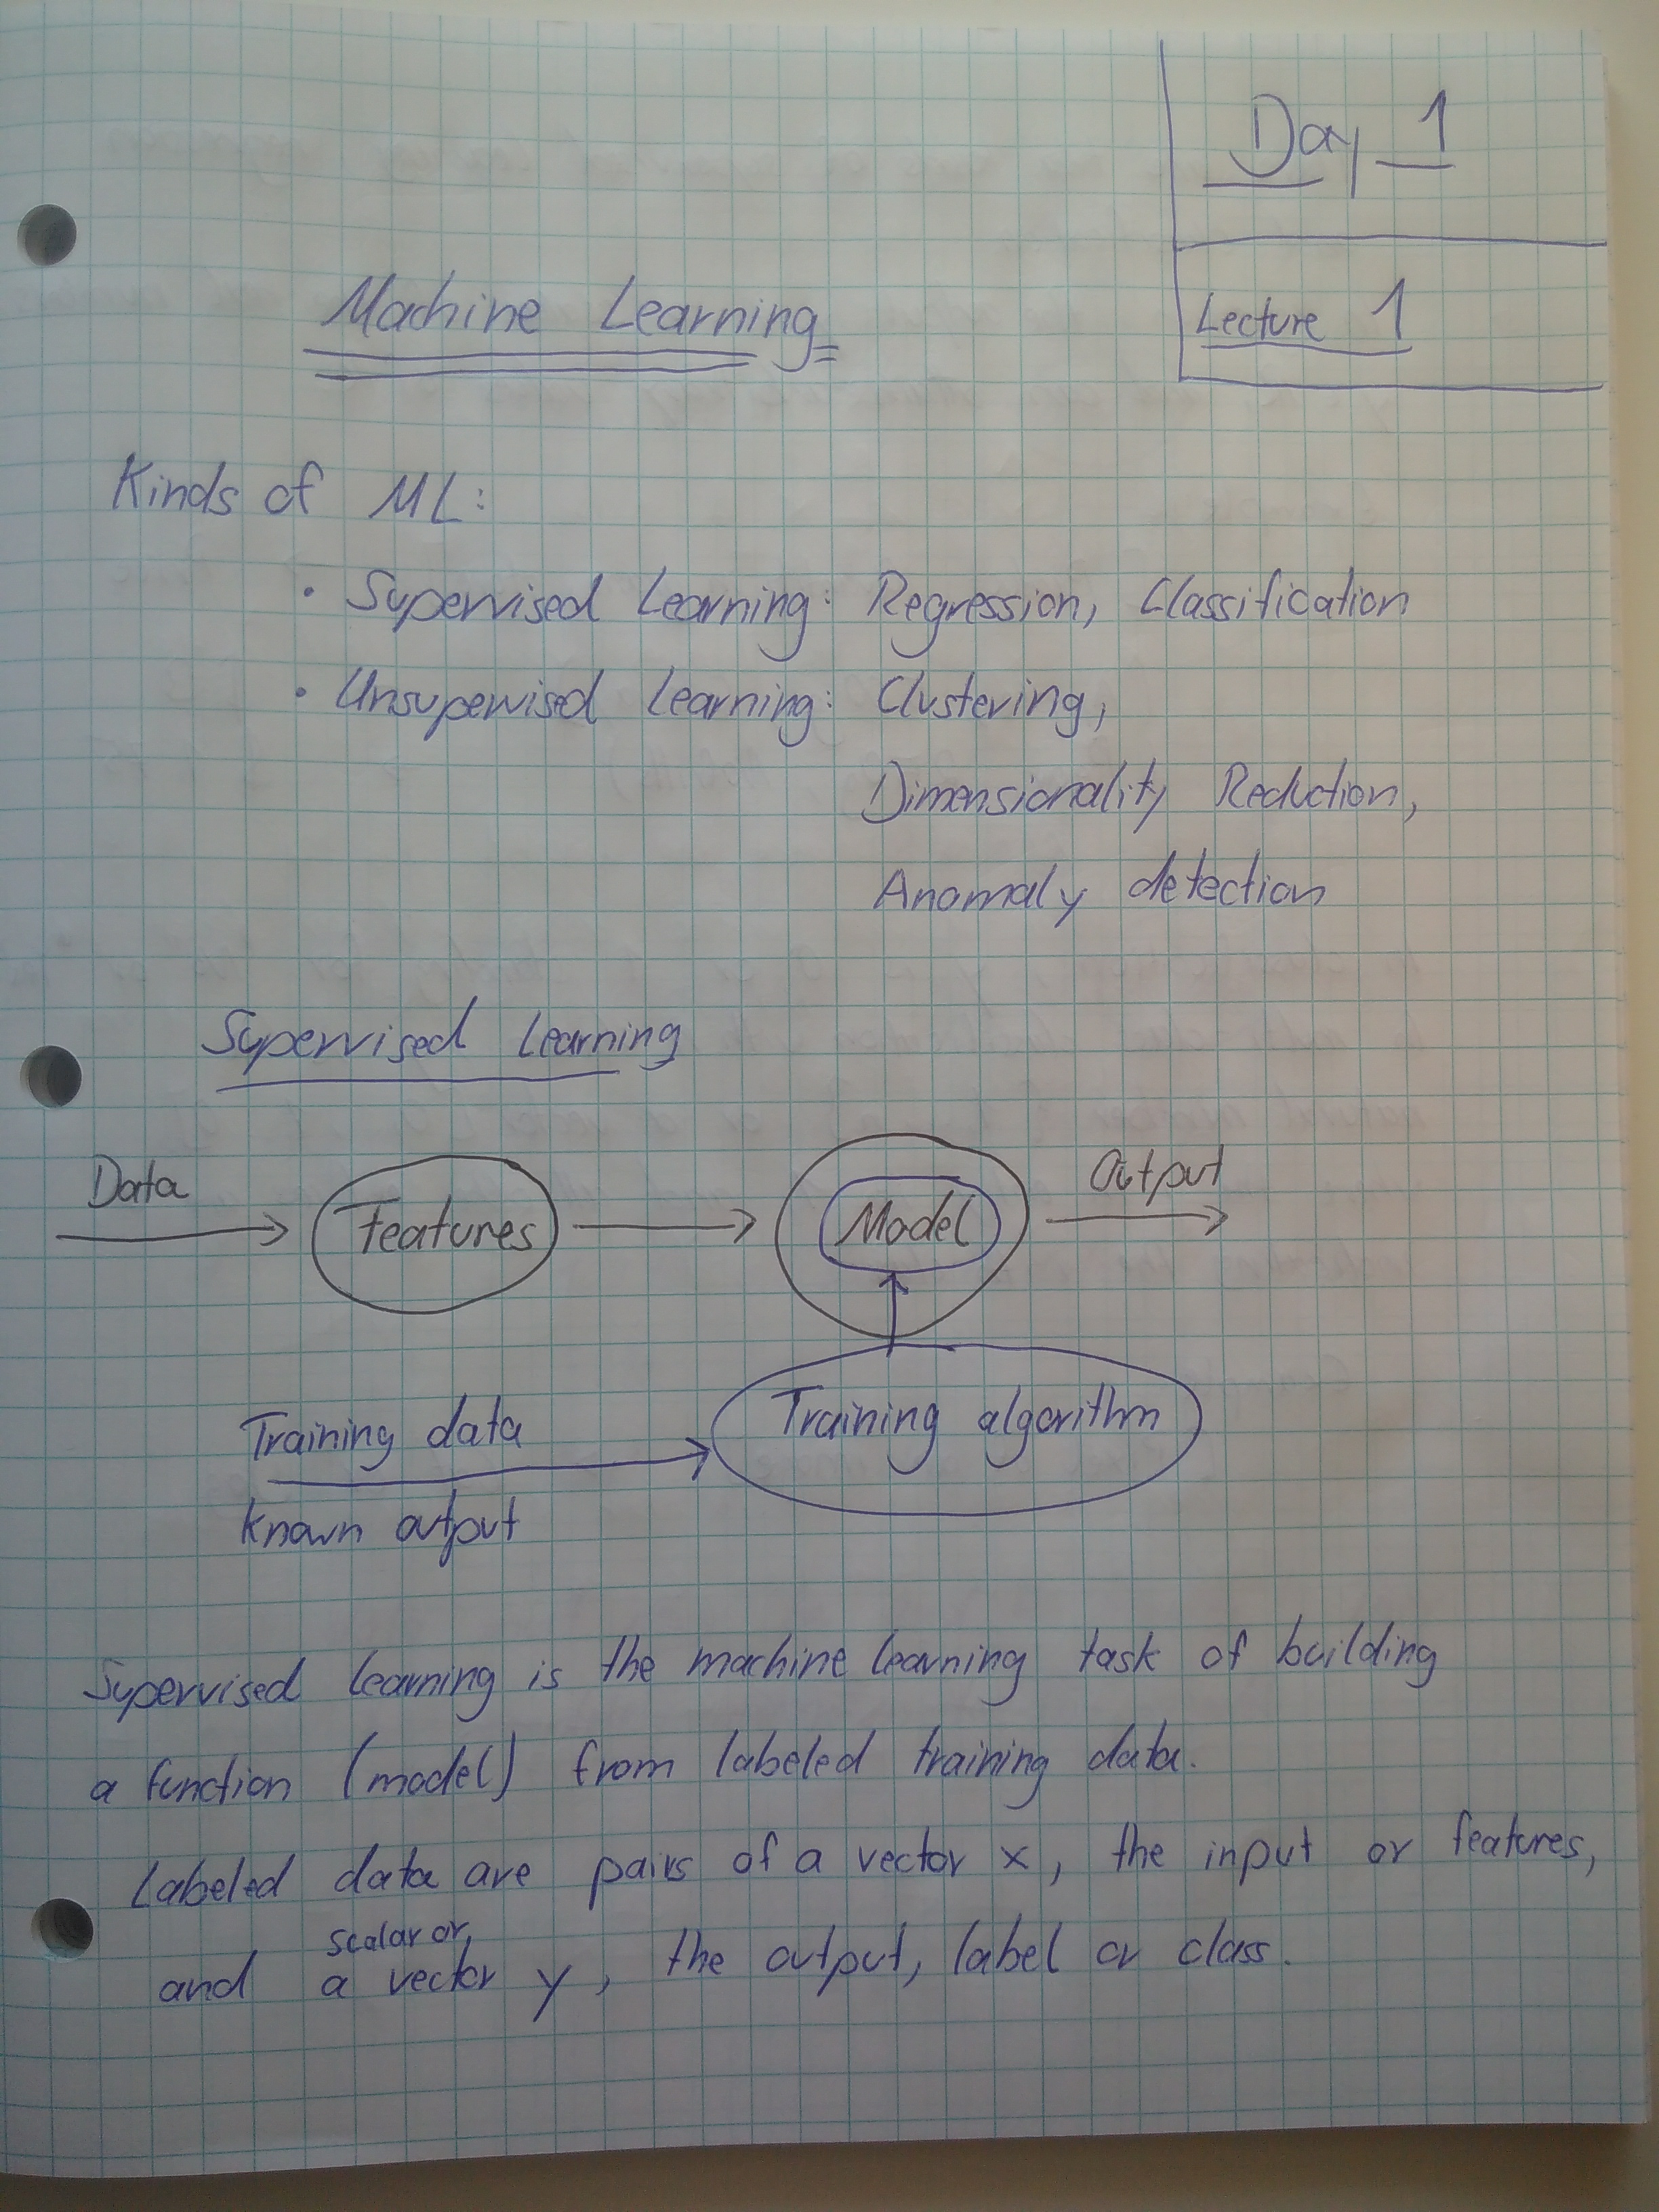 Day 1
Lecture 1
Machine Learning
Kinds of ML:
• Supervised Learning: Regression, Classification
• Unsupervised Learning: Clustering,
Dimensionality Reduction,
Anomaly detection
Supervised Learning
Data
Features
Model
Output
Training data
known output
Training algorithm
Supervised learning is the machine learning task of building
a function (model) from labeled training data.
Labeled data are pairs of a vector x, the input or features,
scalar or
and a vector y, the output, label or class.